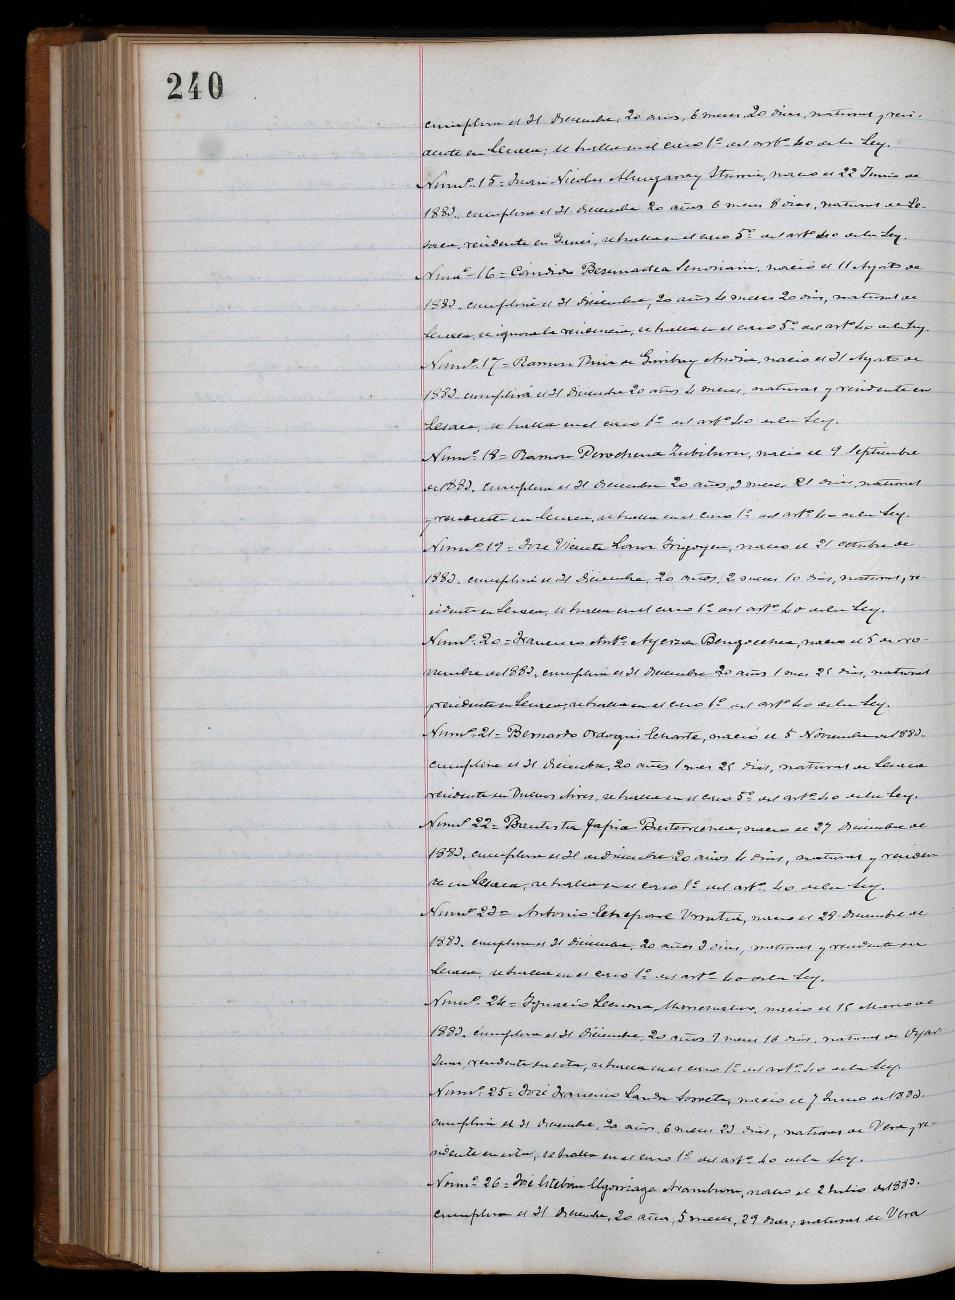 240
cumplira el 31 Diciembre, 20 años, 6 meses, 20 dias, natural y resi-
dente en Lesaca; se halla en el caso 1º del artº 40 de la Ley.
Numº 15 = Juan Nicolas Iturria, nacio el 22 Junio de
1883. cumplira el 31 diciembre 20 años 6 meses 8 dias, natural de Le-
saca, residente en se halla en el caso 5º del artº 40 de la Ley.
Numº 16 = Candido nacio el 11 Agosto de
1883. cumplira el 31 diciembre, 20 años 4 meses 20 dias, natural de
Lesaca, se ignora la residencia, se halla en el caso 5º del artº 40 de la Ley.
Numº 17 = Ramon de Andia, nacio el 31 Agosto de
1883. cumplirá el 31 diciembre 20 años 4 meses, natural y residente en
Lesaca, se halla en el caso 1º del artº 40 de la Ley.
Numº 18 = Ramon Perochena Zubiburu, nacio el 9 Septiembre
de 1883. cumplira el 31 diciembre 20 años, 3 meses 21 dias, natural
y residente en Lesaca, se halla en el caso 1º del artº 40 de la Ley.
Numº 19 = José Vicente Irigoyen, nacio el 21 octubre de
1883. cumplira el 31 Diciembre, 20 años, 2 meses 10 dias, natural y re-
sidente en Lesaca, se halla en el caso 1º del artº 40 de la Ley.
Numº 20 = Francisco Antº Ayerza Bengoechea, nacio el 5 de no-
viembre de 1883, cumplira el 31 diciembre 20 años 1 mes 25 dias, natural
y residente en Lesaca; se halla en el caso 1º del artº 40 de la Ley.
Numº 21 = Bernardo Ordoqui nació el 5 Noviembre de 1883.
cumplira el 31 diciembre, 20 años 1 mes 25 dias, natural de Lesaca
residente en Buenos Aires, se halla en el caso 5º del artº 40 de la Ley.
Numº 22 = Bautista Tapia nacio el 27 diciembre de
1883. cumplira el 31 de diciembre 20 años 4 dias, natural y residen-
te en Lesaca, se halla en el caso 1º del artº 40 de la Ley.
Numº 23 = Antonio Urrutia, nacio el 28 diciembre de
1883. cumplira el 31 diciembre, 20 años 3 dias, natural y residente en
Lesaca, se halla en el caso 1º del artº 40 de la Ley.
Numº 24 = Ignacio Lecuona nacio el 15 Marzo de
1883. cumplira el 31 Diciembre, 20 años 9 meses 16 dias. natural de Oyar-
zun, residente en esta, se halla en el caso 1º del artº 40 de la Ley.
Numº 25 = José Francisco Landa nacio el 7 Junio de 1883.
cumplira el 31 diciembre, 20 años, 6 meses 23 dias, natural de Vera y re-
sidente en esta, se halla en el caso 1º del artº 40 de la Ley.
Numº 26 = José Esteban Elgorriaga Aramburu, nacio el 2 Julio de 1883.
cumplira el 31 diciembre, 20 años, 5 meses, 29 dias; natural de Vera